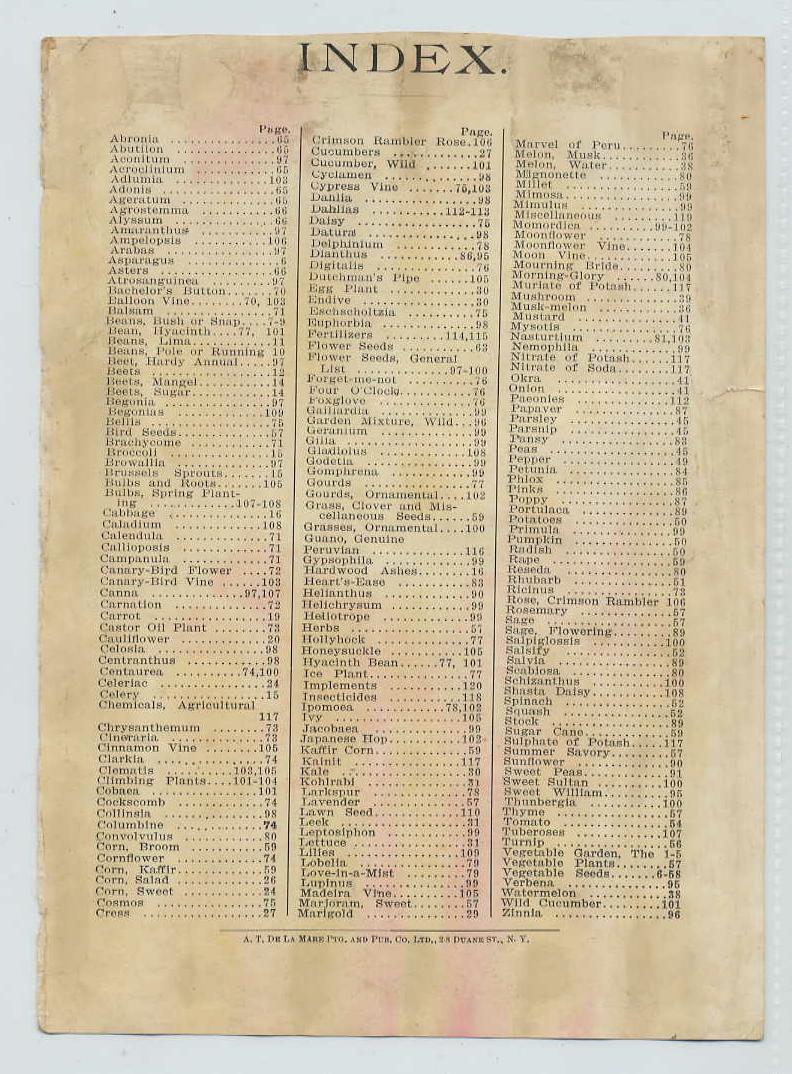 INDEX.
Page.
Abronia ..............65
Abutilon ..............65
Aconitum .............97
Acroclinium ...........65
Adlumia ..............103
Adonis ...............65
Ageratum .............65
Agrostemma ..........66
Alyssum ..............66
Amaranthus ...........97
Ampelopsis ...........106
Arabas ...............97
Asparagus .............6
Asters ................66
Atrosanguinea .........97
Bachelor's Button.......70
Balloon Vine.......70, 103
Balsam ...............71
Beans, Bush or Snap....7-9
Bean, Hyacinth....77, 101
Beans, Lima............11
Beans, Pole or Running 10
Beet, Hardy Annual.....97
Beets .................12
Beets, Mangel..........14
Beets, Sugar...........14
Begonia ...............97
Begonias .............109
Bellis .................75
Bird Seeds.............57
Brachycome ...........71
Broccoli ..............15
Browallia .............97
Brussels Sprouts.......15
Bulbs and Roots......105
Bulbs, Spring Plant-
ing ............107-108
Cabbage ..............16
Caladium ............108
Calendula .............71
Callioposis ............71
Campanula ............71
Canary-Bird Flower ....72
Canary-Bird Vine .....103
Canna .............97,107
Carnation .............72
Carrot ................19
Castor Oil Plant .......73
Cauliflower ............20
Celosia ...............98
Centranthus ...........98
Centaurea .........74,100
Celeriac ...............24
Celery ................15
Chemicals, Agricultural
117
Chrysanthemum .......73
Cineraria ..............73
Cinnamon Vine .......105
Clarkia ...............74
Clematis .........103,105
Climbing Plants....101-104
Cobaea ..............101
Cockscomb ............74
Collinsia ..............98
Columbine ............74
Convolvulus ...........80
Corn, Broom ..........59
Cornflower ............74
Corn, Kaffir............59
Corn, Salad ............26
Corn, Sweet ...........24
Cosmos ...............75
Cress .................27
Page.
Crimson Rambler Rose.106
Cucumbers ............27
Cucumber, Wild .......101
Cyclamen .............98
Cypress Vine ......75,103
Dahlia ................98
Dahlias ..........112-113
Daisy .................75
Datura ................98
Delphinium ...........78
Dianthus ...........86,95
Digitalis ...............76
Dutchman's Pipe .....105
Egg Plant .............30
Endive ................30
Eschscholtzia ..........75
Euphorbia .............98
Fertilizers ........114,115
Flower Seeds ..........63
Flower Seeds, General
List .............97-100
Forget-me-not .........76
Four O'Clock..........76
Foxglove ..............76
Gaillardia .............99
Garden Mixture, Wild...96
Geranium .............99
Gilia ..................99
Gladiolus ............108
Godetia ...............99
Gomphrena ...........99
Gourds ...............77
Gourds, Ornamental....102
Grass, Clover and Mis-
cellaneous Seeds......59
Grasses, Ornamental....100
Guano, Genuine
Peruvian ............116
Gypsophila ............99
Hardwood Ashes.......16
Heart's-Ease ..........83
Helianthus ............90
Helichrysum ..........99
Heliotrope ............99
Herbs .................57
Hollyhock .............77
Honeysuckle .........105
Hyacinth Bean.....77, 101
Ice Plant...............77
Implements ..........120
Insecticides ..........118
Ipomoea ..........78,102
Ivy ..................105
Jacobaea ..............99
Japanese Hop.........102
Kaffir Corn............59
Kainit ...............117
Kale .................30
Kohlrabi ..............31
Larkspur ..............78
Lavender ..............57
Lawn Seed...........110
Leek ..................31
Leptosiphon ...........99
Lettuce ...............31
Lilies ................109
Lobelia ...............79
Love-in-a-Mist .........79
Lupinus ...............99
Madeira Vine.........105
Marjoram, Sweet.......57
Marigold ..............29
Page.
Marvel of Peru.........76
Melon, Musk...........36
Melon, Water..........38
Mignonette ............80
Millet .................59
Mimosa...............99
Mimulus ..............99
Miscellaneous ........119
Momordica .......99-102
Moonflower ...........78
Moonflower Vine......104
Moon Vine............105
Mourning Bride........80
Morning-Glory .....80,104
Muriate of Potash.....117
Mushroom ............39
Musk-melon ..........36
Mustard ..............41
Mysotis ...............76
Nasturtium ........81,103
Nemophila ............99
Nitrate of Potash......117
Nitrate of Soda........117
Okra ..................41
Onion .................41
Paeonies .............112
Papaver ...............87
Parsley ................45
Parsnip ...............45
Pansy .................83
Peas ..................45
Pepper ................49
Petunia ...............84
Phlox .................85
Pinks .................86
Poppy ................87
Portulaca .............89
Potatoes ..............50
Primula ...............99
Pumpkin ..............50
Radish ................50
Rape ..................59
Reseda ................80
Rhubarb ..............51
Ricinus ...............73
Rose, Crimson Rambler 106
Rosemary .............57
Sage ..................57
Sage, Flowering........89
Salpiglossis ..........100
Salsify ................52
Salvia .................89
Scabiosa ..............80
Schizanthus ..........100
Shasta Daisy.........108
Spinach ...............52
Squash ...............52
Stock .................89
Sugar Cane............59
Sulphate of Potash.....117
Summer Savory........57
Sunflower .............90
Sweet Peas............91
Sweet Sultan .........100
Sweet William.........95
Thunbergia ..........100
Thyme ...............57
Tomato ...............54
Tuberoses ............107
Turnip ................56
Vegetable Garden, The 1-5
Vegetable Plants........57
Vegetable Seeds.......6-58
Verbena ..............95
Watermelon ...........38
Wild Cucumber........101
Zinnia ................96
A. T. De La Mare Ptg. and Pub. Co. Ltd., 2-8 Duane St., N. Y.